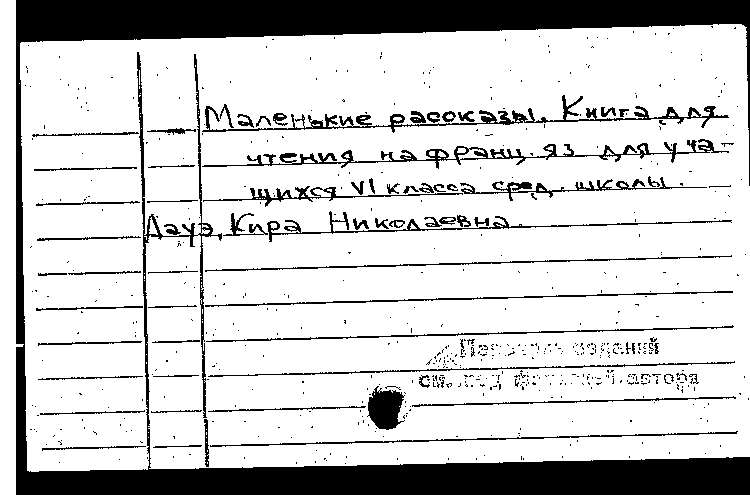 Маленькие рассказы. Книга для
чтения на франц. яз для уча-
щихся VI класса сред. школы.
Дауэ, Кира Николаевна.
Перечень изданий
см. под фамилией автора